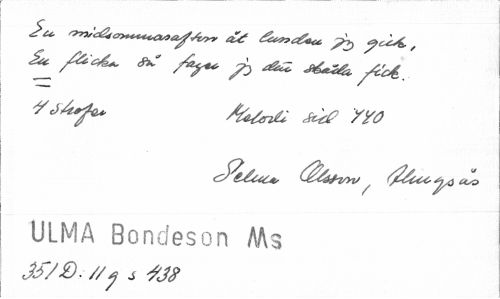 En midsommarsafton åt lunden jg gick,
En flicka så fager jg där skåda fick.
=
4 strofer Melodi sid 440
Selma Olsson, Alingsås
ULMA Bondeson Ms
351 D: 11 g s 438